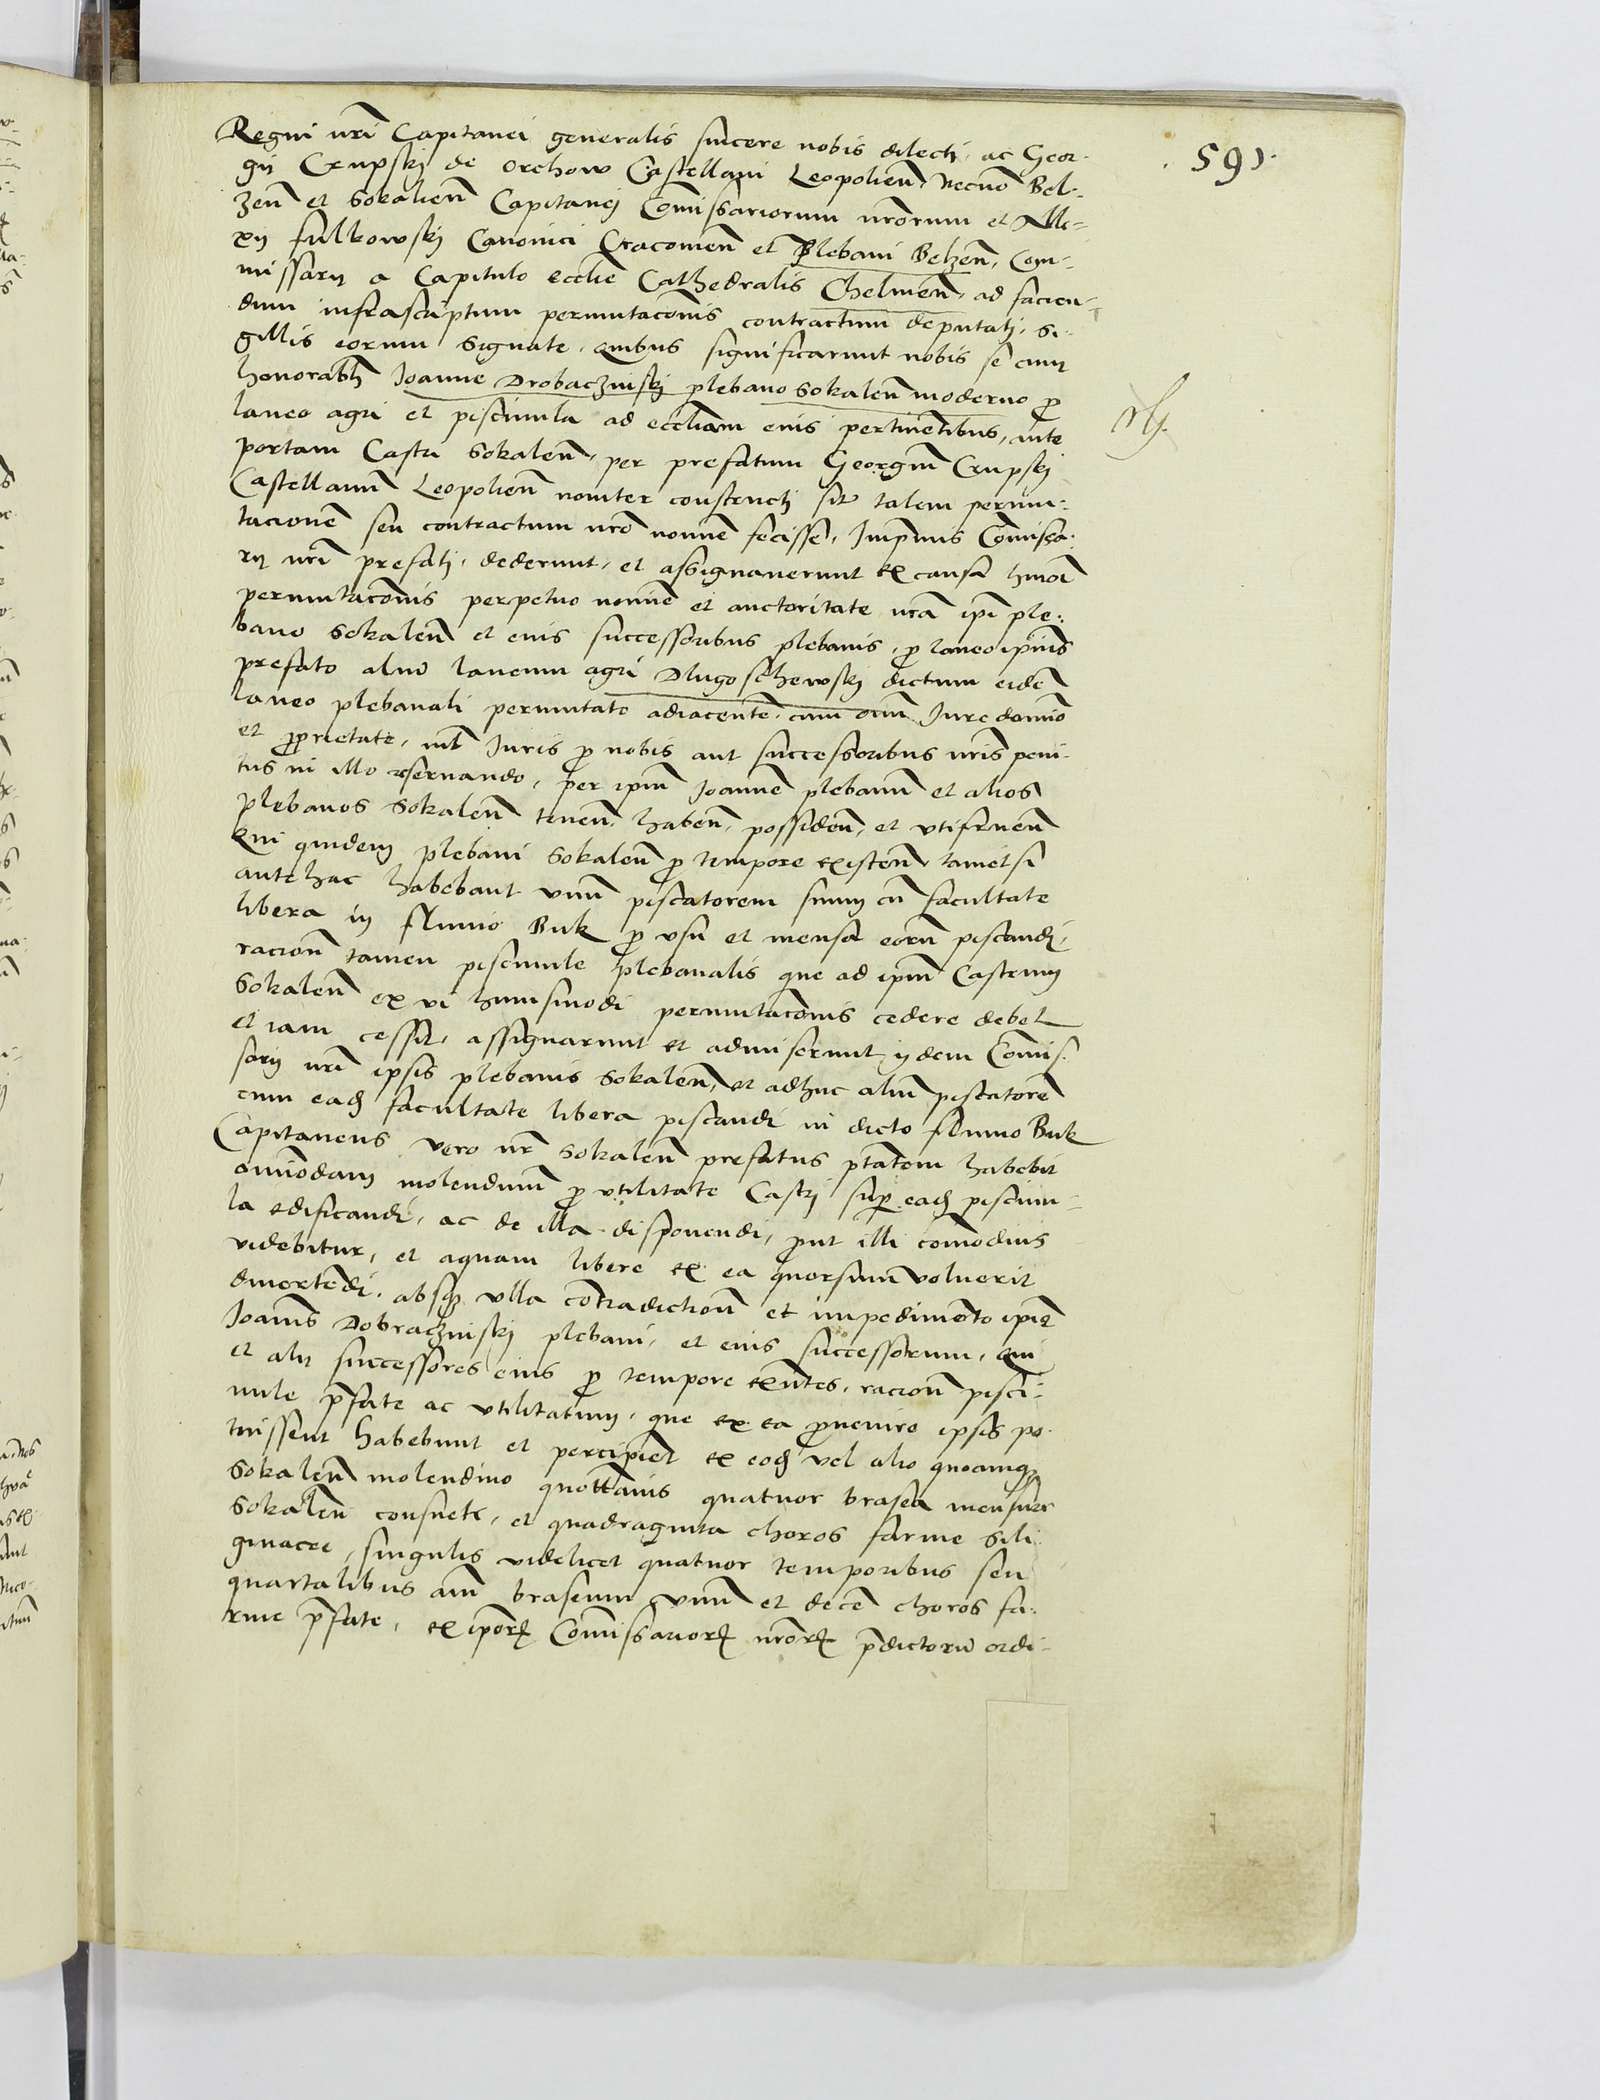 591.
Regni nri Capitanei generalis sincere nobis dilecti, ac Geor-
gii Crupskj de Orchow Castellani Leopolien̄, Necnō Bel-
zen̄ et Sokalien̄ Capitanej Com̄issariorum nrōrum et Alle-
xij fulkowskj Canonici Cracouien̄ et Plebani Belzen̄, Com-
missarij a Capitulo ecclie Cathedralis Chelmen̄, ad facien-
dum infrascriptum permutacōnis contractum deputatj, Si-
gillis eorum signate, Quibus significarunt nobis se cum
honorabli Ioanne Drobaczinskj plebano Sokalen̄ moderno ꝓ
laneo agri et piscinula ad ecclīam eius pertinētibus, ante
portam Castri Sokalen̄, per prefatum Georgiū Crupskj
Castellanū Leopolien̄ nouiter constructj sit talem permu-
tacionē seu contractum nrō nomīe fecisse, Imprimis Com̄issa-
rij nri prefatj, dederunt, et assignauerunt ex causa hmōi
permutacōnis perpetuo nomīe et auctoritate nrā ipi ple-
bano Sokalen̄ et eius successoribus plebanis, ꝓ laneo ipius
prefato aliud laneum agri Dlugoschewskj dictum eidē
laneo plebanali permutato adiacentē, cum omī Iure dominio
et ꝓprietate, nil Iuris ꝓ nobis aut successoribus nris peni-
tus in illo reseruando, per ipm Ioannē plebanū et alios
plebanos Sokalen̄ tenen̄, haben̄, possiden̄, et vtifruen̄
Qui quidem plebani Sokalen̄ ꝓ tempore existen̄, tametsi
antehac habebant vnū piscatorem suum cū facultate
libera in fluuio Buk ꝓ vsu et mensa eorū piscandi,
racion̄ tamen piscinule plebanalis que ad ipm Castrum
Sokalen̄ ex vi huiusmodi permutacōnis cedere debet
et iam cessit, assignarunt et admiserunt ijdem Com̄is-
sarij nri ipsis plebanis Sokalen̄, et adhuc aliū piscatorē
cum eadē facultate libera piscandi in dicto fluuio Buk
Capitaneus vero nr̄ Sokalen̄ prefatus ptātem habebit
omnīodam molendinū ꝓ vtilitate Castrj super eadē piscinu-
la edificandi, ac de illa disponendi, ꝓut illi com̄odius
videbitur, et aquam libere ex ea quorsum voluerit
diuertēdi, absq; vlla cōtradiction̄ et impedimento ipius
Ioānis Dobraczinskj plebani, et eius successorum, Qui
et alij successores eius ꝓ tempore exn̄tes, racion̄ pisci-
nule p̄fate ac vtilitatum, que ex ea ꝓuenire ipsis po-
tuissent habebunt et percipiēt ex eodē vel alio quocumq;
Sokalen̄ molendino quottānis quatuor brasea mensure
Sokalen̄ consuete, et quadraginta choros farine Sili-
ginacee, singulis videlicet quatuor temporibus seu
quartalibus anni braseum vnū et decē choros fa-
rine p̄fate, ex ipōrꝝ Com̄issariorꝝ nrōrꝝ p̄dictorū ordi-